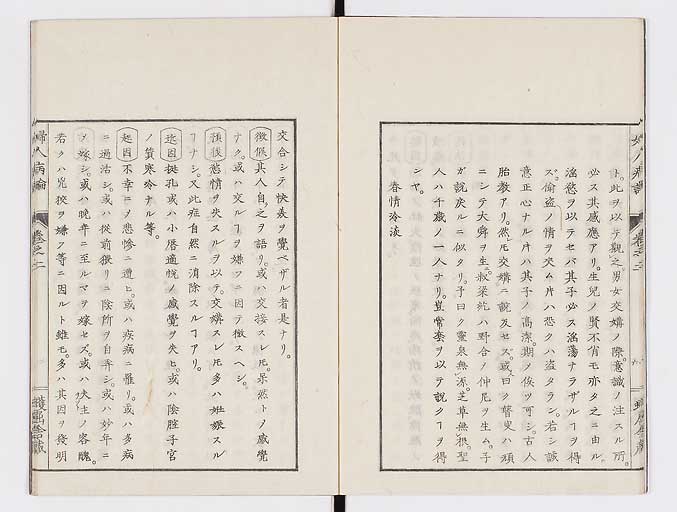 ト。此ヲ以テ観之。男女交媾ノ際。意識ノ注スル所。
必ス其感應アリ。生兒ノ賢不肖モ亦タ之ニ由ル。
淫慾ヲ以テセバ其子必ス淫蕩ナラザルヿヲ得
ズ。偸盗ノ情ヲ夾ム片ハ恐クハ盗タラン。若シ誠
意正心ナル片ハ其子ノ高潔。期ノ俟ツ可シ。古人
胎教アリ。然レモ交媾ニ説及セズ。或曰ク瞽叟ハ頑
ニシテ大舜ヲ生ム。叔梁紇ハ野合ノ仲尼ヲ生ム。子
ガ説戻ルニ似タリ。予曰ク靈泉無源。芝草無根。聖
人ハ千歳ノ一人ナリ。豈常套ヲ以テ説クヿヲ得
ンヤ。
春情冷淡
交合シテ快美ヲ覺ベザル者是ナリ。
徴候 其人自之ヲ語リ。或ハ交接スレ𪜈。呆然トノ感覺
ナク。或ハ交ルヿヲ嫌フニ因テ徴スベシ。
預後 慾情ヲ失スルヲ以テ。交媾スレ𪜈多ハ妊娠スル
ヿナシ。又此症自然ニ消除スルヿアリ。
近因 挺孔或ハ小唇適悦ノ感覺ヲ失ヒ。或ハ陰腟子宮
ノ質寒冷ナル等。
起因 不幸ニノ悲慘ニ遭ヒ。或ハ疾病ニ罹リ。或ハ多病
ニ過沽シ。或ハ從前猥リニ陰所ヲ自弄シ。或ハ妙年ニ
ノ嫁シ。或ハ晩年ニ至ルマヲ嫁セズ。或ハ夫主ノ容醜。
若クハ兇狡ヲ嫌ク等ニ因ルト雖モ。多ハ其因ヲ發明
婦人病論
卷之二